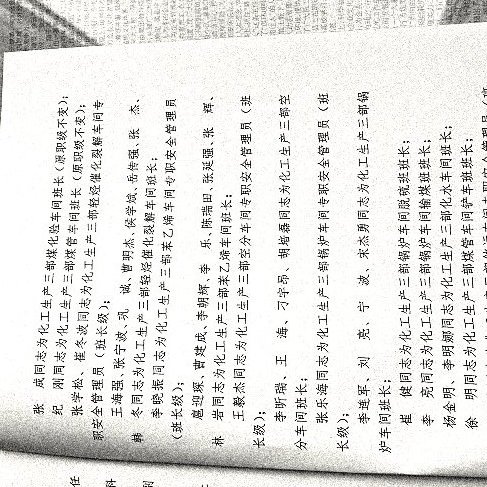 张　成同志为化工生产三部煤化验车间班长（原职级不变）；
纪　刚同志为化工生产三部煤管车间班长（原职级不变）；
张学松、崔冬波同志为化工生产三部轻烃催化裂解车间专
职安全管理员（班长级）；
王海强、张宁波、巩　诚、曹明杰、侯学斌、岳传强、张　杰、
韩　冬同志为化工生产三部轻烃催化裂解车间班长；
李晓张同志为化工生产三部苯乙烯车间专职安全管理员
（班长级）；
扈迎琛、曹建成、李朝辉、李　乐、陈瑞田、张延强、张　辉、
林　岩同志为化工生产三部苯乙烯车间班长；
王毅杰同志为化工生产三部空分车间专职安全管理员（班
长级）；
李昕瑞、王　海、刁学昂、胡培磊同志为化工生产三部空
分车间班长；
张乐海同志为化工生产三部锅炉车间专职安全管理员（班
长级）；
李连军、刘　亮、宁　波、宋杰勇同志为化工生产三部锅
炉车间班长；
崔　健同志为化工生产三部锅炉车间脱硫班班长；
李　亮同志为化工生产三部锅炉车间输煤班班长；
杨金明、李明娜同志为化工生产三部化水车间班长；
徐　明同志为化工生产三部煤管车间铲车班班长；